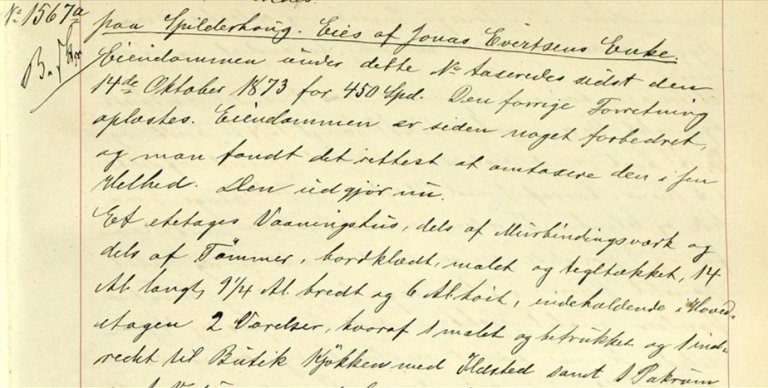 No 1567a
paa Spilderhaug. Eies af Jonas Evertsens Enke.
Eiendommen under dette No taxeredes sidst den
14de Oktober 1873 for 450 Spd. Den forrige Forretning
oplæstes. Eiendommen er siden noget forbedret,
og man fandt det rettest at omtaxere den i sin
Helhed. Den udgjør nu.
Et etetages Vaaningshus, dels af Murbindingsværk og
dels af Tømmer, bordklædt, malet og tegltækket, 14
Al. langt, 9 1/4 Al. bredt og 6 Al. høit, indeholdende i Hoved-
etagen 2 Værelser, hvoraf 1 malet og betrukket og 1 ind-
redet til Butik Kjøkken med Ildsted samt 1 Pakrum